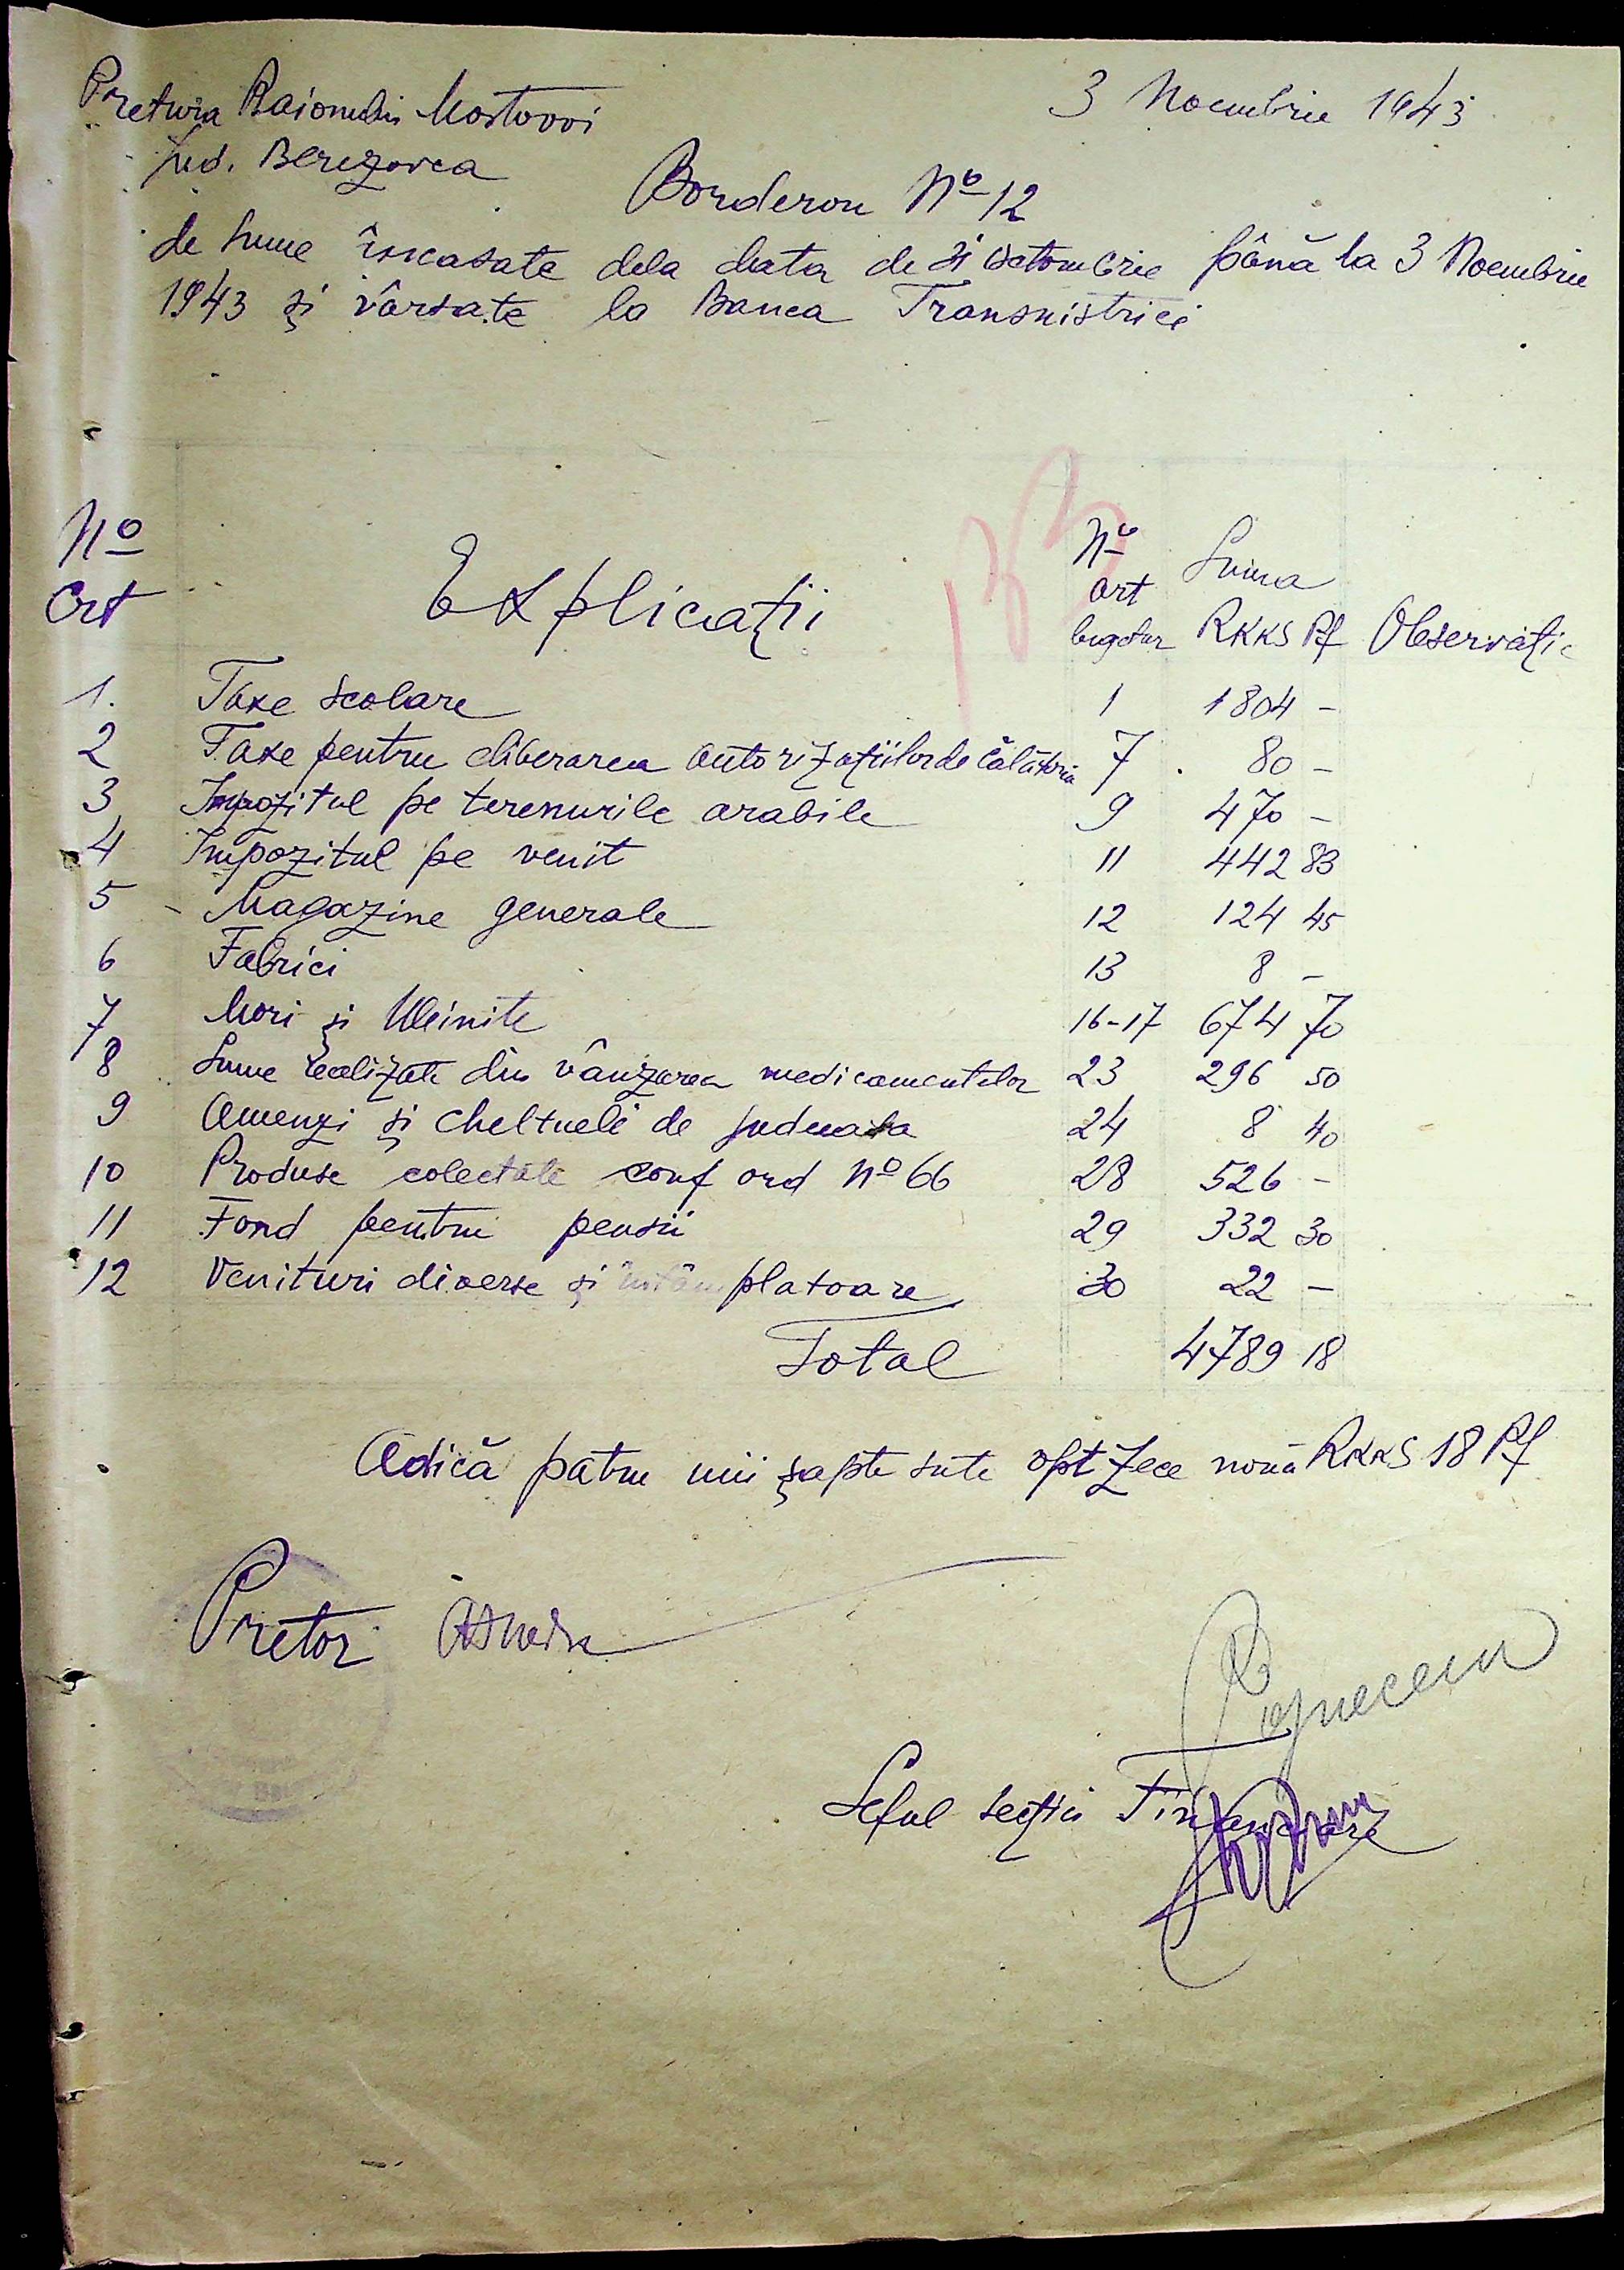 Pretura Raionului Mostovoi
3 Noembrie 1943
Jud. Berezovca
Borderou Nº 12
de sume încasate dela data de 31 Octombrie până la 3 Noembrie
1943 și vârsate la Banca Transnistriei
Nº Crt Explicații Nº art bugetar Suma RKKS Pf Observații
1. Taxe scolare 1 1804 -
2 Taxe pentru eliberarea autorizațiilor de călătorie 7 80 -
3 Impozitul pe terenurile arabile 9 470 -
4 Impozitul pe venit 11 442 83
5 - Magazine generale 12 124 45
6 Fabrici 13 8 -
7 Mori și Uleinite 16-17 674 70
8 Sume realizate din vânzarea medicamentelor 23 296 50
9 Amenzi și cheltueli de judecata 24 8 40
10 Produse colectate conf ord Nº 66 28 526 -
11 Fond pentru pensii 29 332 30
12 Venituri diverse și întâmplatoare 30 22 -
Total 4789 18
Adică patru mii șapte sute optzece nouă RKKS 18 Pf
Pretor
Seful secției Financiare